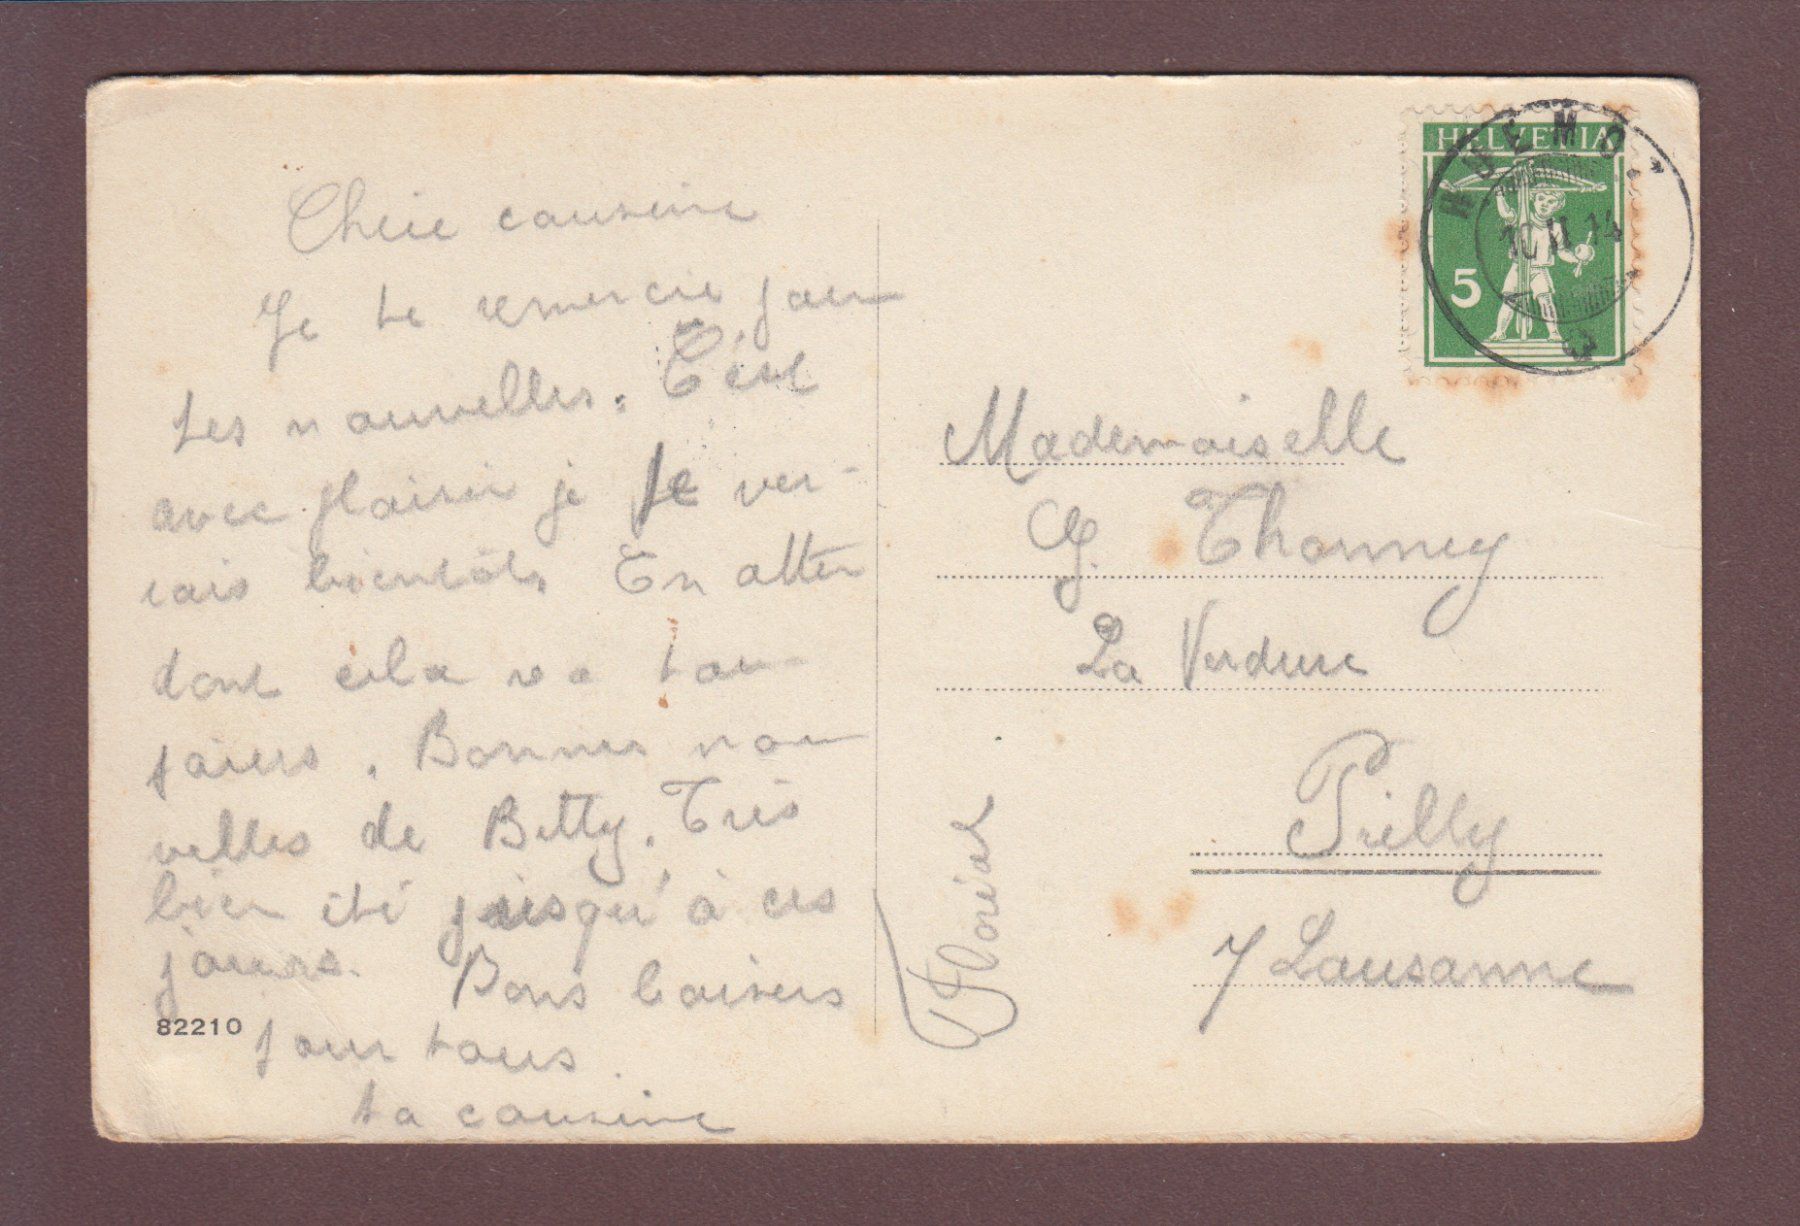 Chère cousine
Je te remercie pour
tes nouvelles. C'est
avec plaisir je te ver-
rais bientôt. En atten
dant cela va tou-
jours. Bonnes nou
velles de Betty. Très
bien été jusqu'à ces
jours. Bons baisers
pour tous
ta cousine
82210
Floréal
HELVETIA
5
HUEMOZ
10 II 14
Mademoiselle
G. Thonney
La Verdure
Prilly
s/ Lausanne